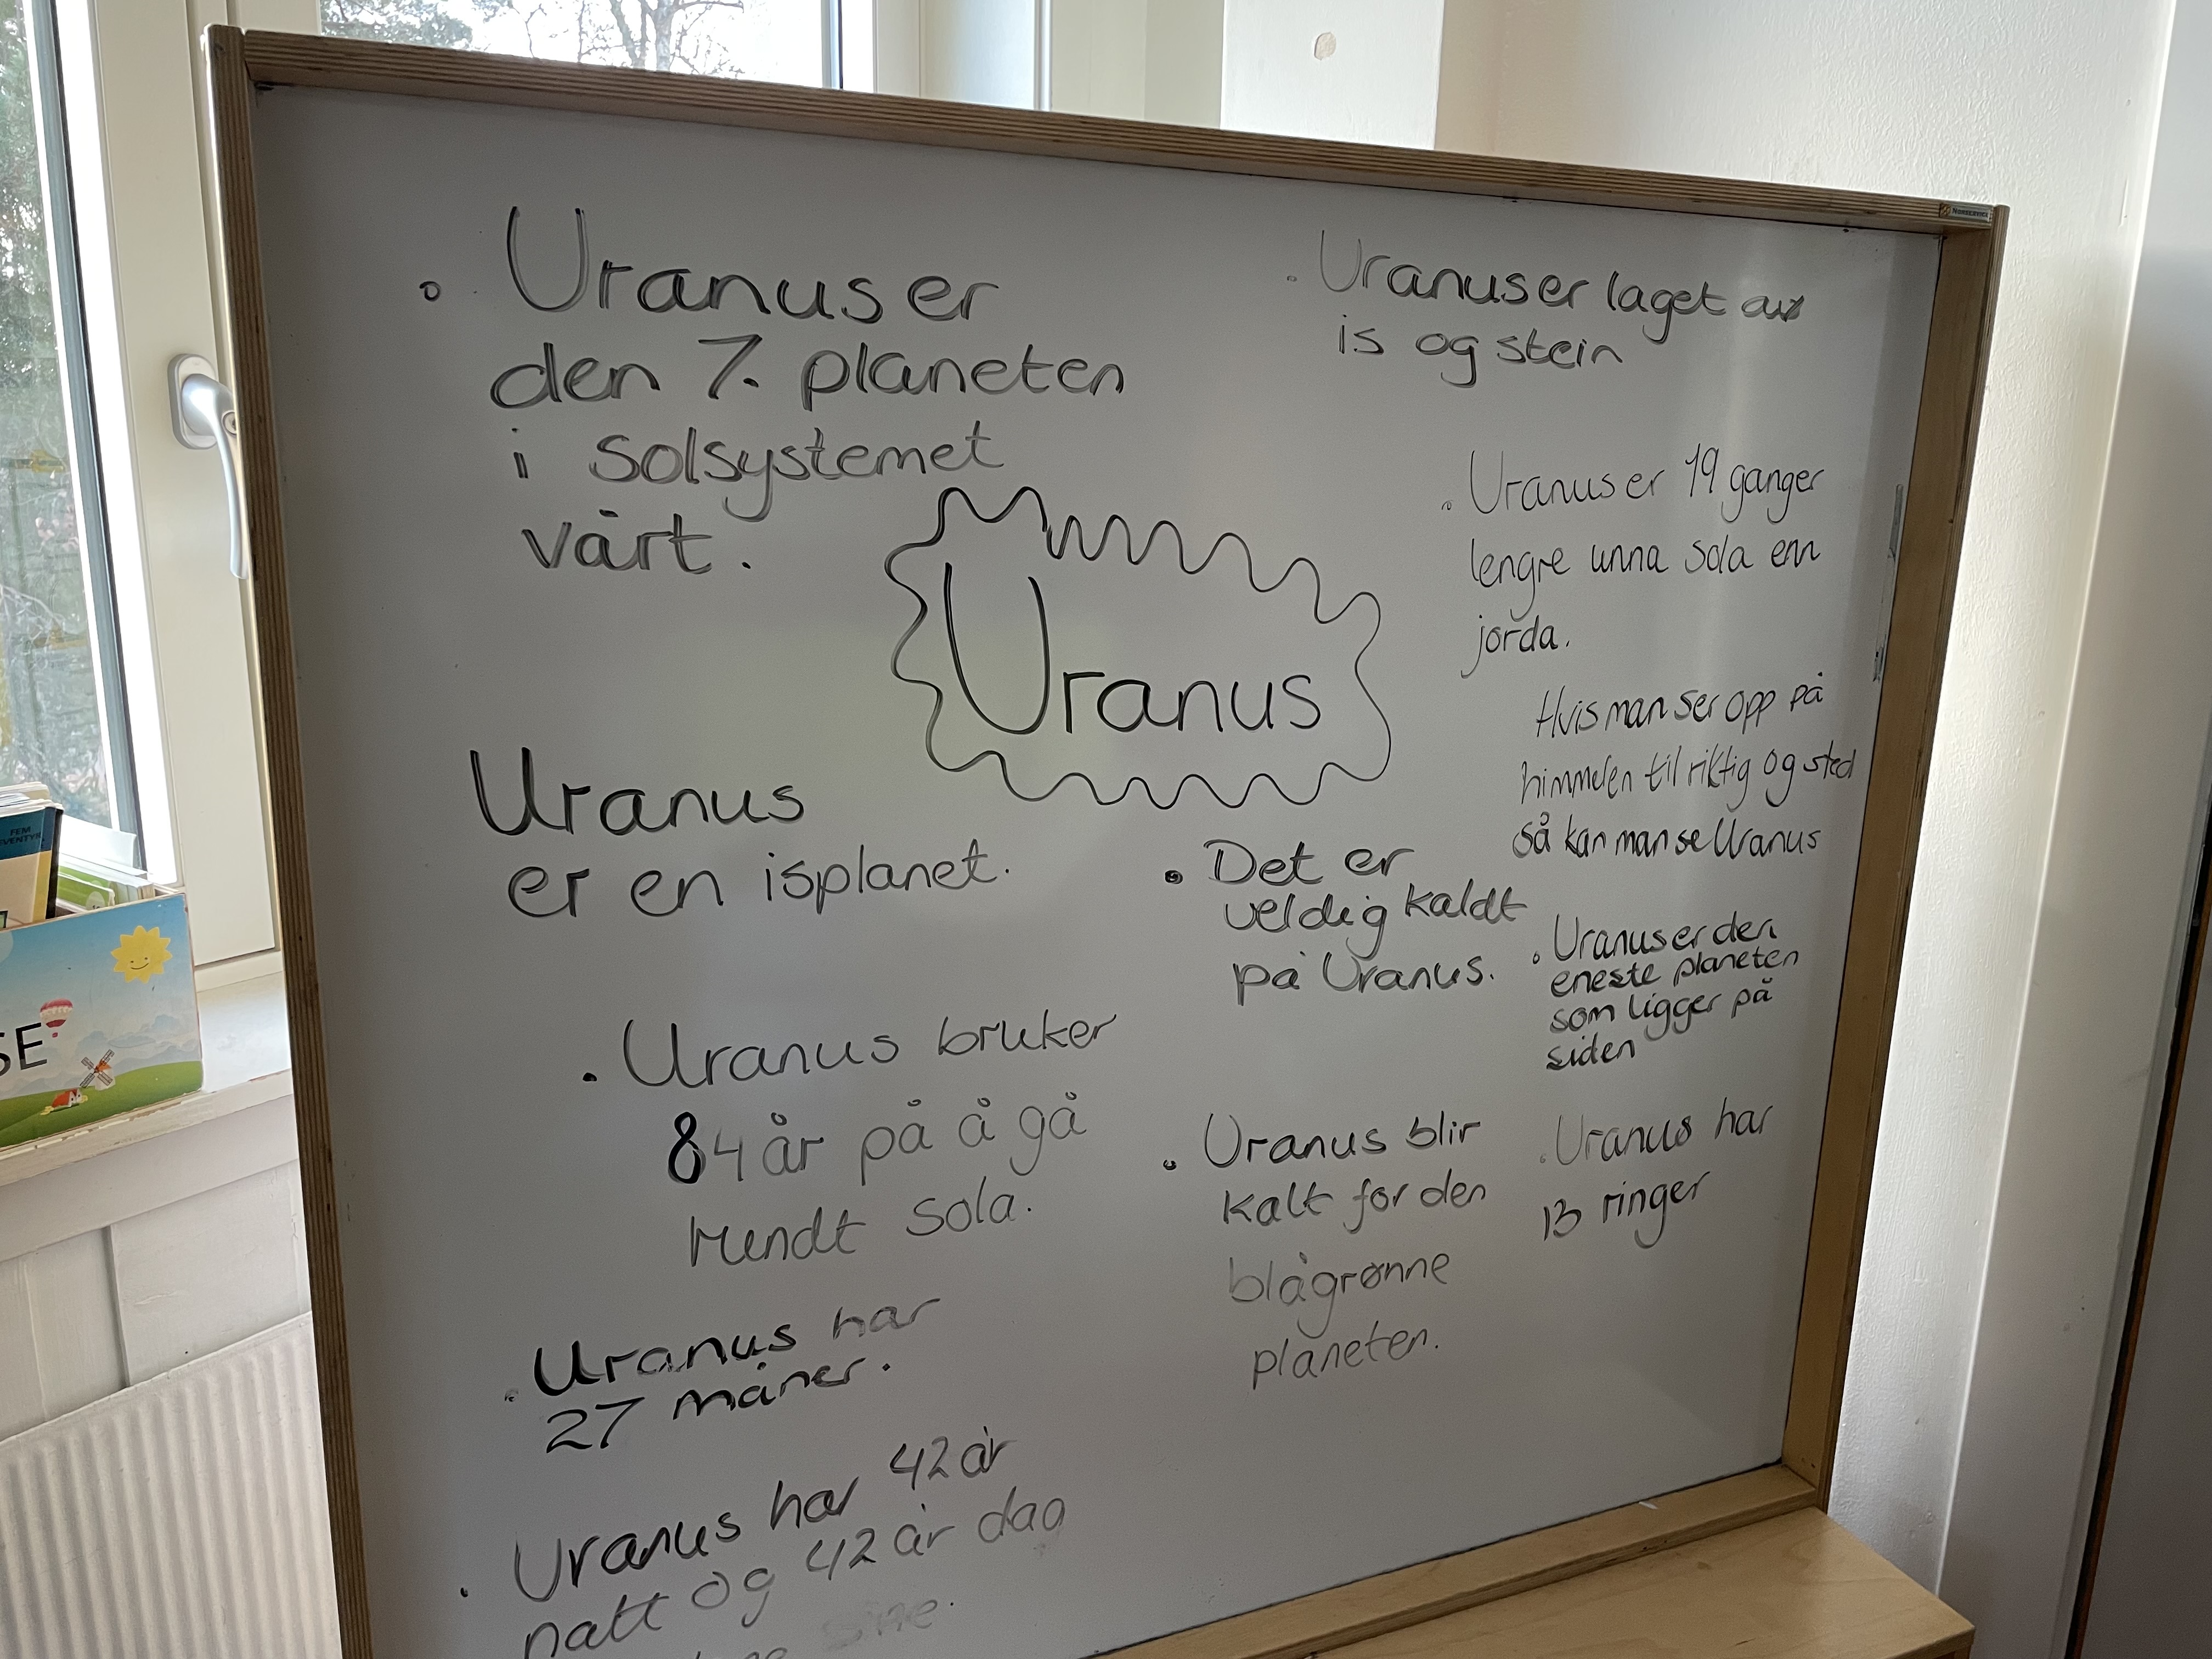 • Uranus er
den 7. planeten
i solsystemet
vårt.
Uranus
Uranus
er en isplanet.
• Uranus bruker
84 år på å gå
rundt sola.
• Uranus har
27 måner.
• Uranus har 42 år
natt og 42 år dag
sine.
• Uranus er laget av
is og stein
• Uranus er 19 ganger
lengre unna sola enn
jorda.
Hvis man ser opp på
himmelen til riktig og sted
så kan man se Uranus
• Det er
veldig kaldt
på Uranus.
• Uranus er den
eneste planeten
som ligger på
siden
• Uranus blir
kalt for den
blågrønne
planeten.
• Uranus har
13 ringer
FEM
EVENTYR
SE